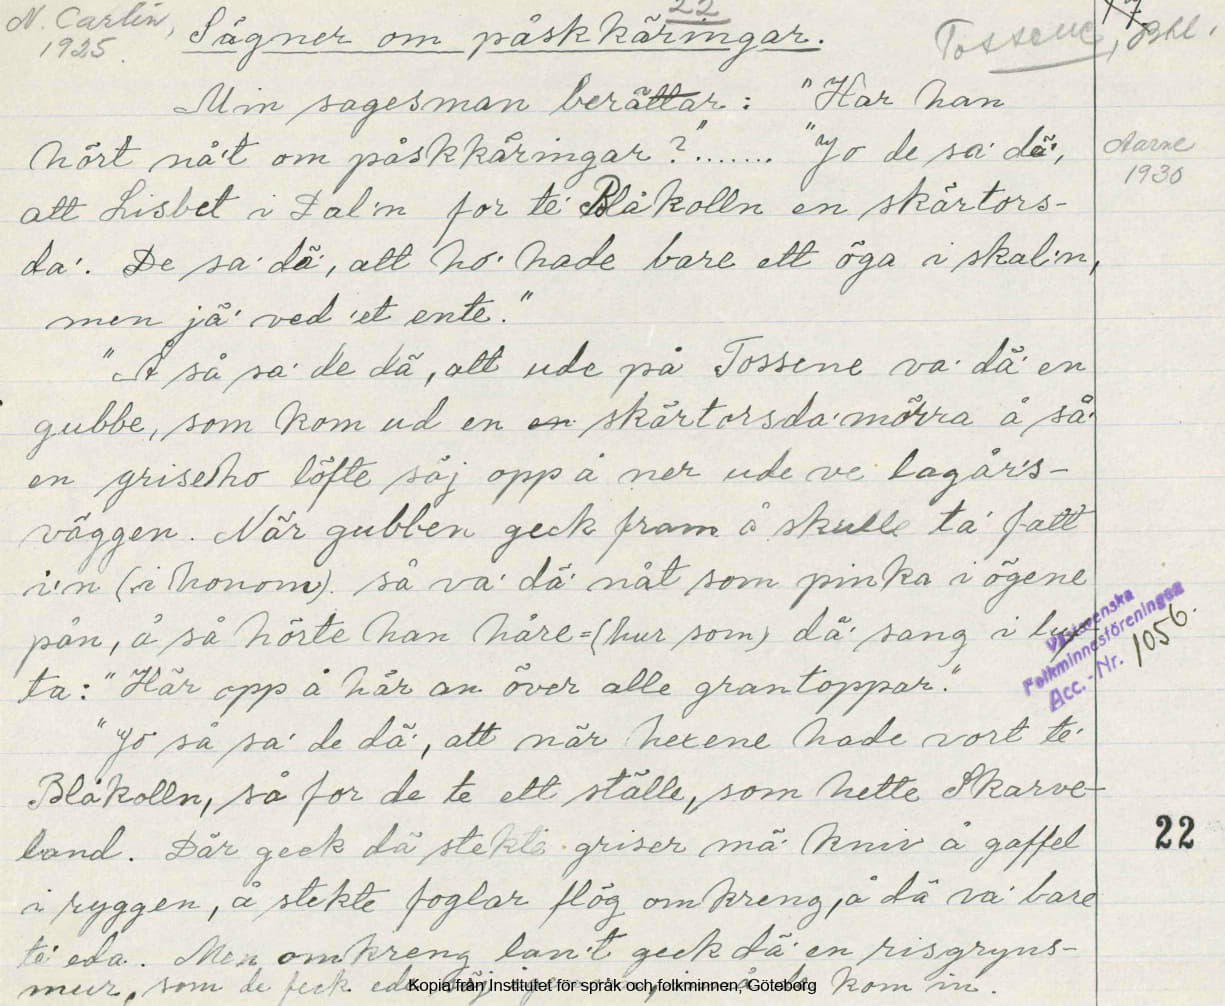 N. Carlin, 1925.
22
Tossene, Bhl.
Sägner om påskkäringar.
Min sagesman berättar: "Har han
hört nå't om påskkäringar?"....... "Jo de sa' dä',
Aarne
1930
att Lisbet i Dal'n for te' Blåkolln en skärtors-
da'. De sa' dä', att ho' hade bare ett öga i skal'n,
men jä' ved 'et ente."
"Å så sa' de dä, att ude på Tossene va' dä' en
gubbe, som kom ud en en skärtorsda'mörra å så'
en griseho löfte säj opp å ner ude ve lagår's-
väggen. När gubben geck fram å skulle ta' fatt
i'n (i honom). så va' dä' nåt som pinka i ögene
pån, å så hörte han håre=(hur som) dä' sang i
ta: "Här opp å här an över alle grantoppar."
Västsvenska
Folkminnesföreningen
Acc.-Nr. 1056.
"Jo så sa' de dä', att när hexene hade vort te'
Blåkolln, så for de te ett ställe, som hette Skarve-
land. Där geck dä stekte griser mä' kniv å gaffel
22
i ryggen, å stekte foglar flög omkreng, å dä va' bare
te' eda. Men omkreng lan't geck dä' en risgryns-
mur, som de feck eda kom in.
Kopia från Institutet för språk och folkminnen, Göteborg